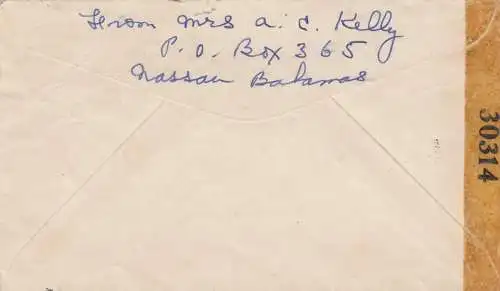 From Mrs A. C. Kelly
P. O. Box 365
Nassau Bahamas
30314